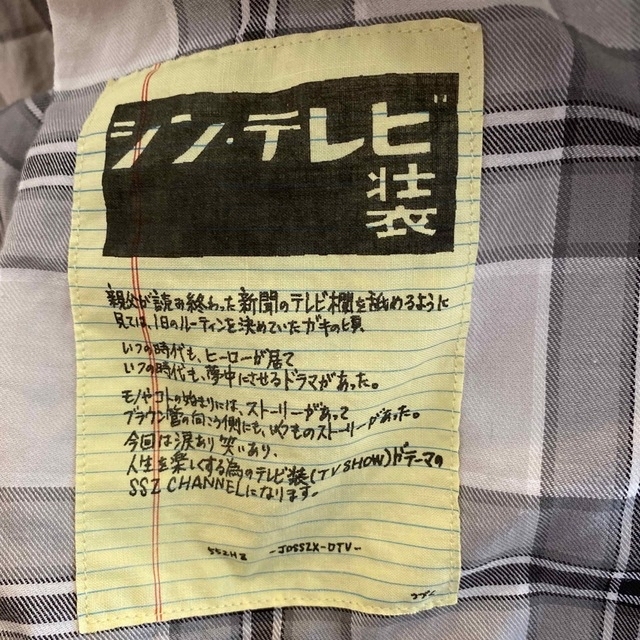 シン・テレビ
装
親父が読み終わった新聞のテレビ欄を舐めるように
見ては、1日のルーティンを決めていたガキの頃
いつの時代も、ヒーローが居て
いつの時代も、夢中にさせるドラマがあった。
モノやコトの始まりには、ストーリーがあって
ブラウン管の向こう側にも、いくつものストーリーがあった。
今回は涙あり笑いあり、
人生を楽しくする為のテレビ装(TV SHOW)がテーマの
SSZ CHANNELになります。
SSZHZ -JOSSZX-DTV-